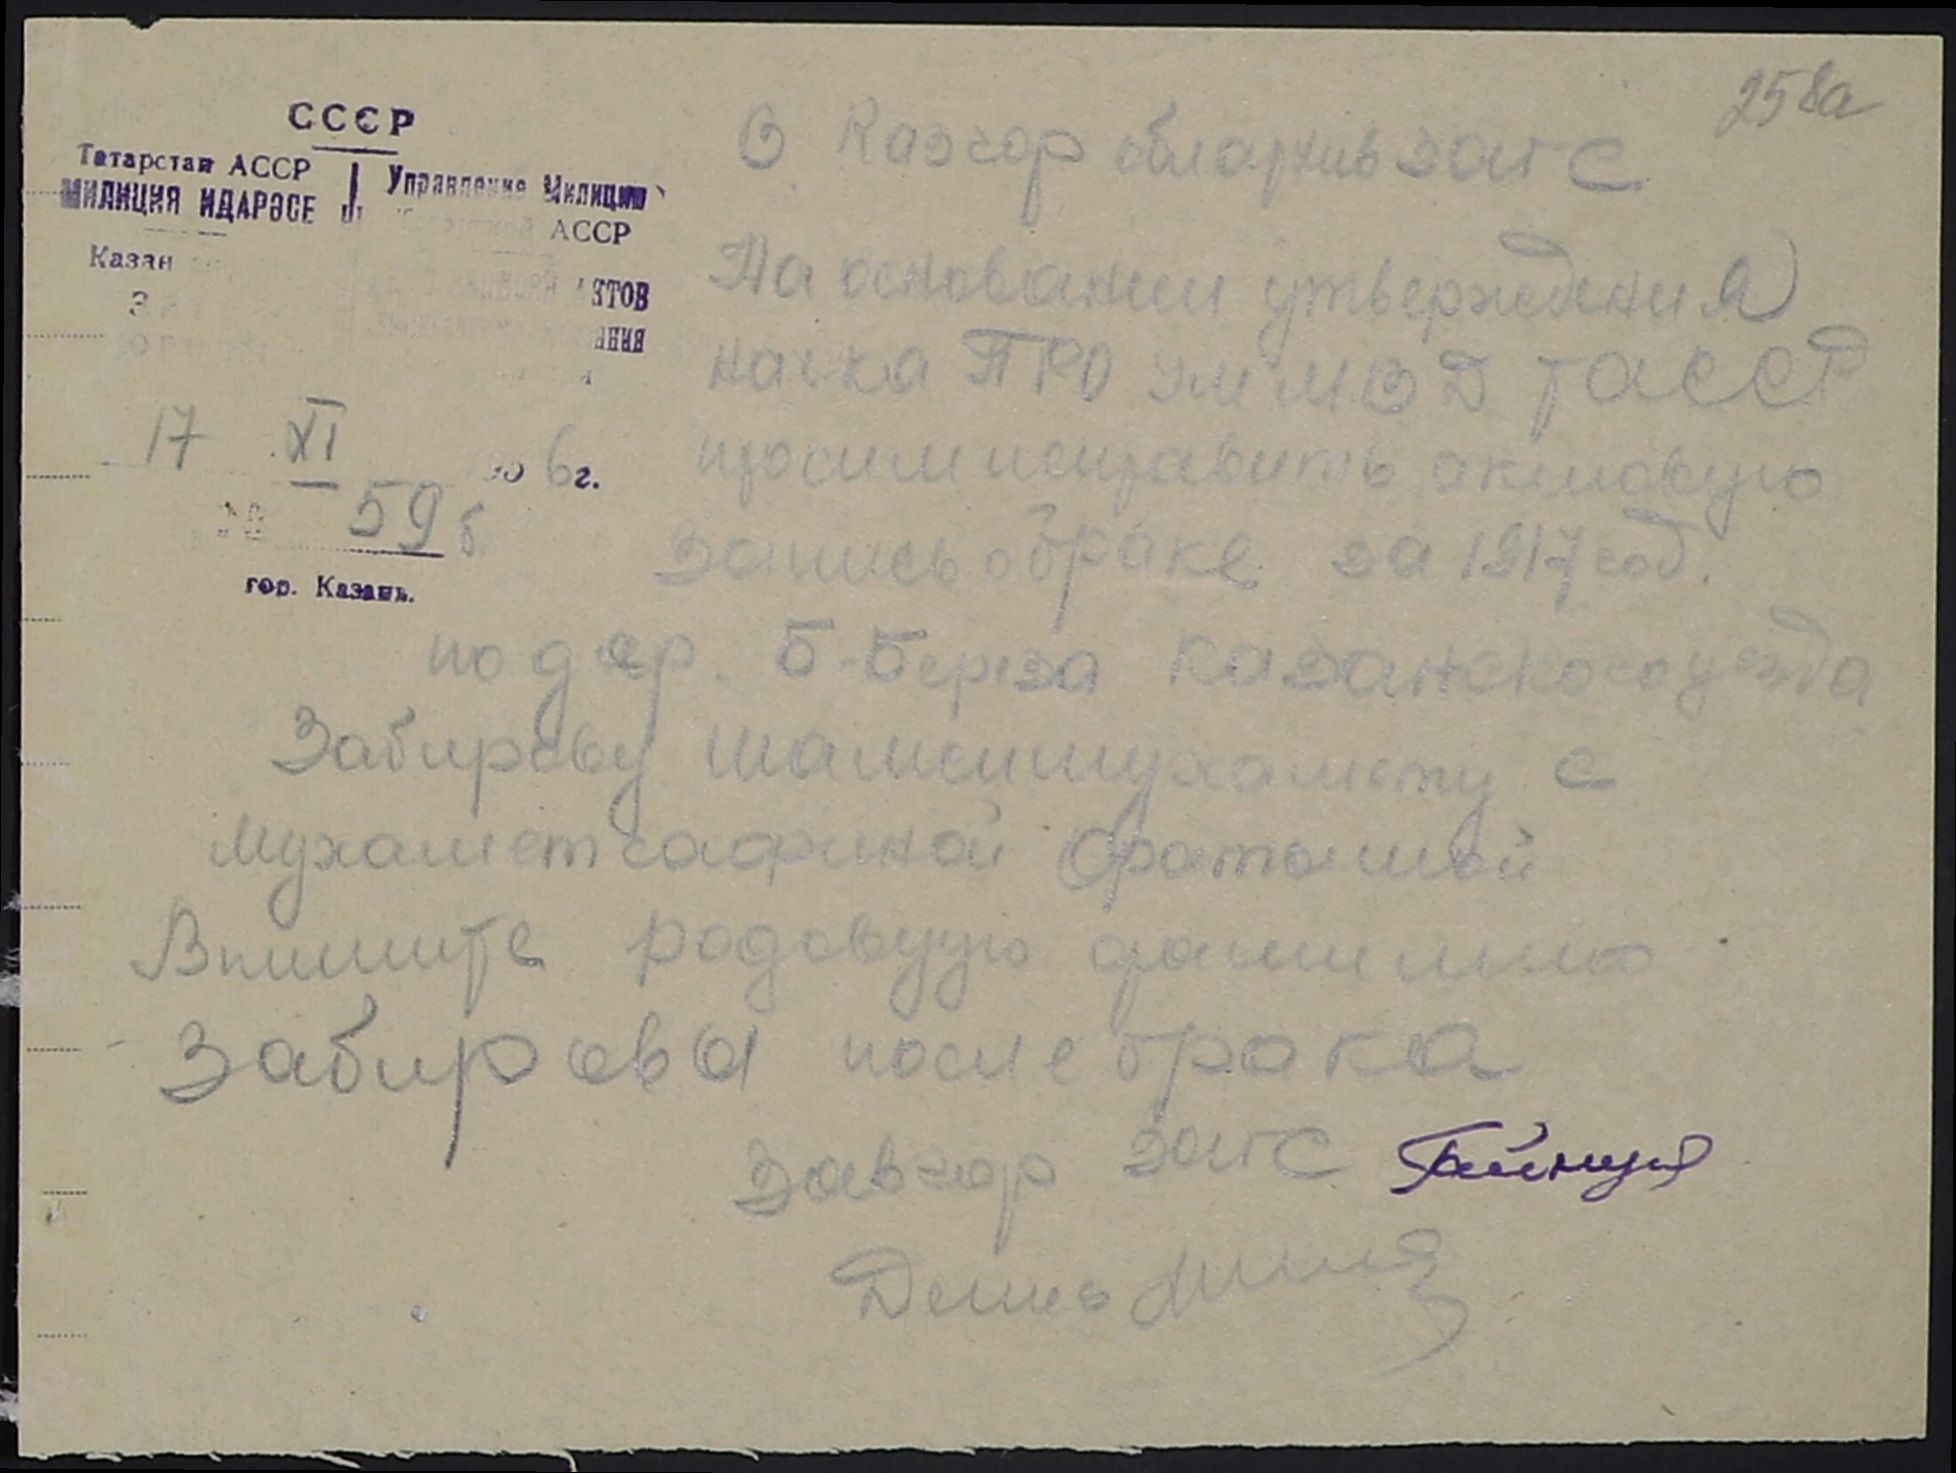 258а
СССР
Татарстан АССР
МИЛИЦИЯ ИДАРӘСЕ
Управление Милиции
АССР
Казан
АКТОВ
17 XI 6г.
59 б
гор. Казань.
В Казгор облархив загС
На основании утверждения
нач-ка ПРО УМ МВД ТАССР
просим исправить актовую
запись о браке за 1917 год.
по дер. Б-Береза Казанского уезда
Забирову Шамсимухамету с
Мухаметгафиной Фатымой
Впишите родовую фамилию
Забировы после брака
Завгор загС